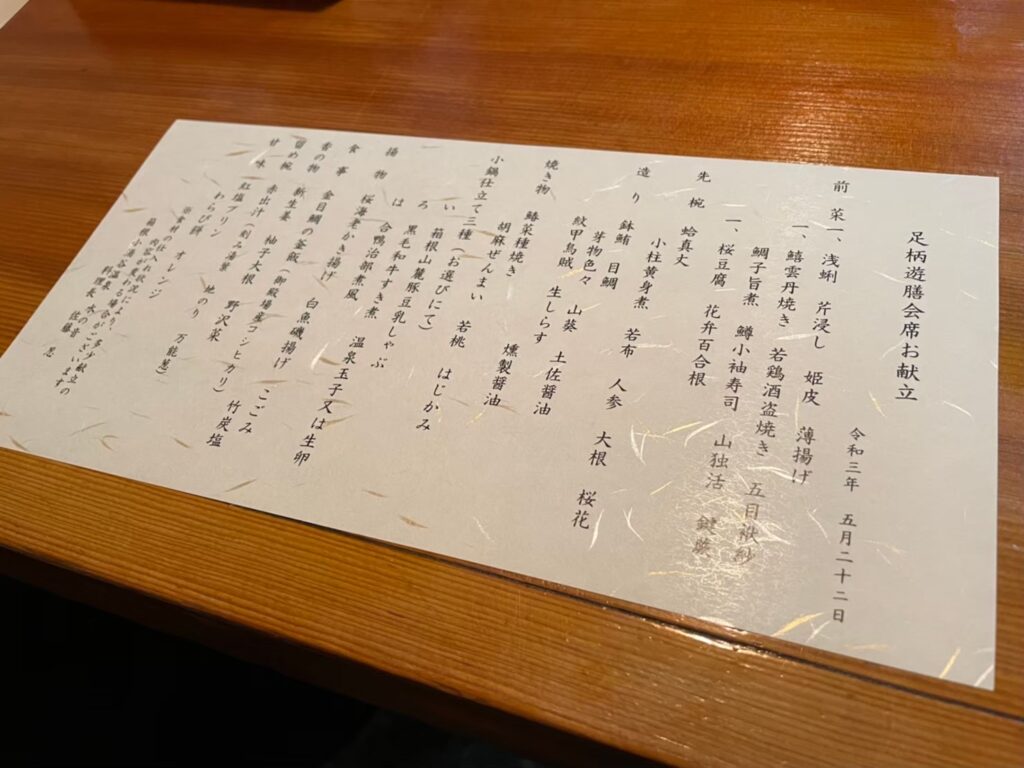 足柄遊膳会席お献立
令和三年 五月二十二日
前菜 一、浅蜊 芹浸し 姫皮 薄揚げ
一、鱚雲丹焼き 若鶏酒盗焼き 五目袱紗
鯛子旨煮 鱒小袖寿司 山独活 鍵蕨
一、桜豆腐 花弁百合根
先椀 蛤真丈
小柱黄身煮 若布 人参 大根 桜花
造り 鉢鮪 目鯛
芽物色々 山葵 土佐醤油
紋甲烏賊 生しらす 燻製醤油
焼き物 鰆菜種焼き
胡麻ぜんまい 若桃 はじかみ
小鍋仕立て三種(お選びにて)
い 箱根山麓豚豆乳しゃぶ
ろ 黒毛和牛すき煮 温泉玉子又は生卵
は 合鴨治部煮風
揚物 桜海老かき揚げ 白魚磯揚げ こごみ 竹炭塩
食事 金目鯛の釜飯(御殿場産コシヒカリ)
香の物 新生姜 柚子大根 野沢菜
留め椀 赤出汁(刻み湯葉 地のり 万能葱)
甘味 紅塩プリン オレンジ
わらび餅
※食材の仕入れ状況により、多少献立の
内容が変わる場合がございます。
箱根小涌谷温泉 水の音
料理長 佐藤